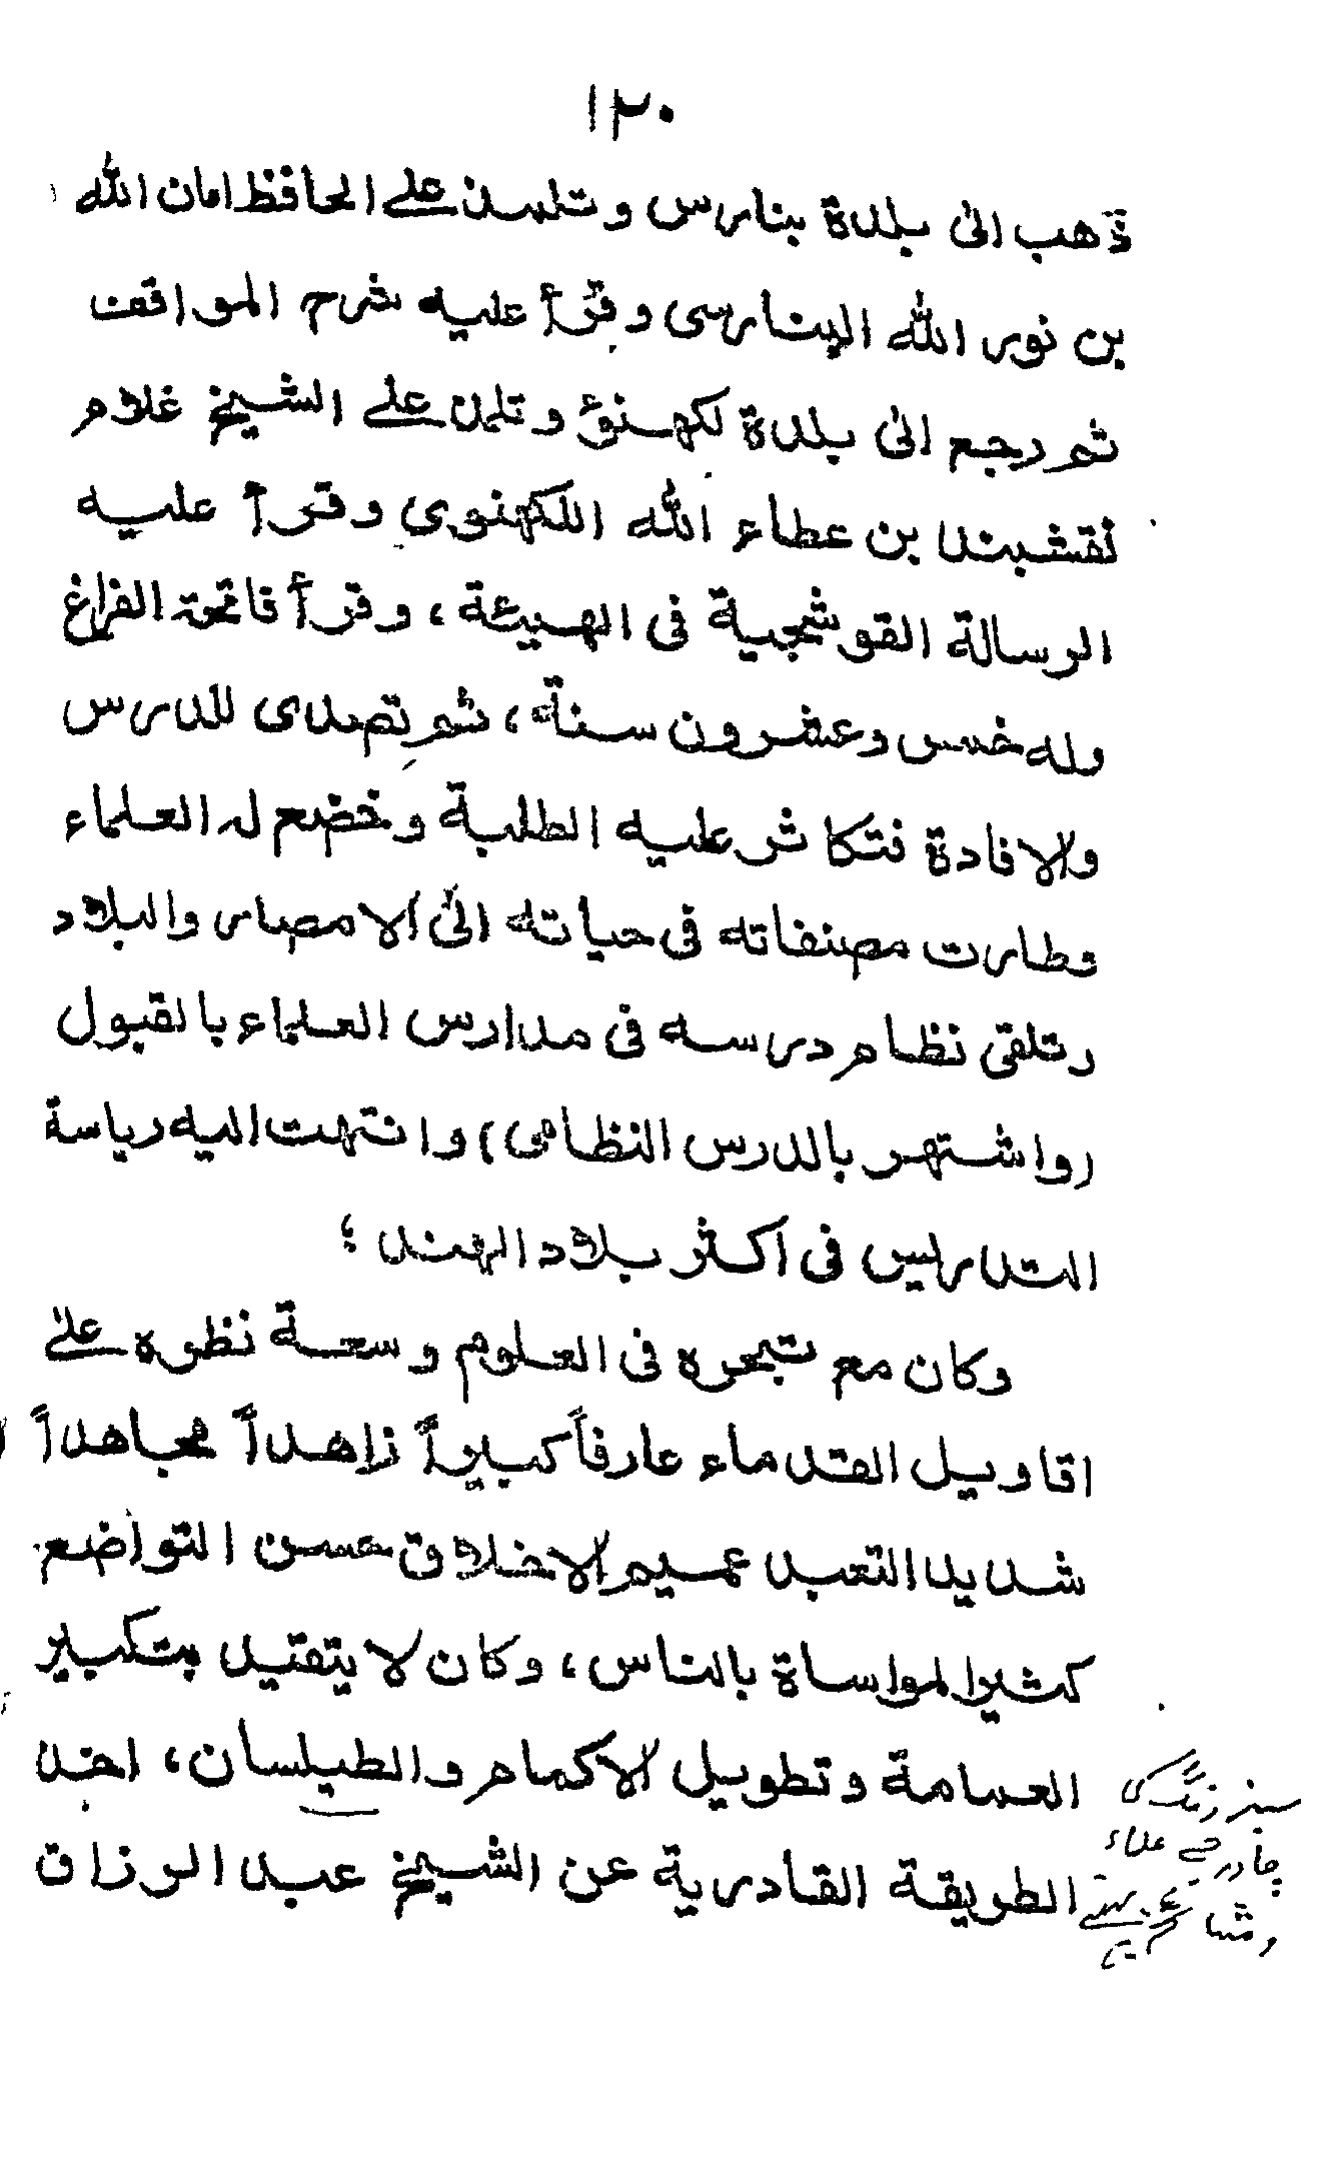 ١٢٠
ذهب الى بلدة بنارس وتلمذ على الحافظ امان الله
بن نور الله البنارسى وقرأ عليه شرح المواقف
ثم رجع الى بلدة لكهنؤ وتلمذ على الشيخ غلام
نقشبند بن عطاء الله اللكهنوى وقرأ عليه
الرسالة القوشجية فى الهيئة، وقرأ فاتحة الفراغ
وله خمس وعشرون سنة، ثم تصدى للدرس
والافادة فتكاثر عليه الطلبة وخضع له العلماء
وطارت مصنفاته فى حياته الى الامصار والبلاد
وتلقى نظام درسه فى مدارس العلماء بالقبول
(واشتهر بالدرس النظامى) وانتهت اليه رياسة
التدريس فى اكثر بلاد الهند ؛
وكان مع تبحره فى العلوم وسعة نظره على
اقاويل القدماء عارفاً كبيراً زاهداً مجاهداً
شديد التعبد عميم الاخلاق حسن التواضع
كثير المواساة بالناس، وكان لا يتقيد بتكبير
العمامة وتطويل الاكمام والطيلسان، اخذ
الطريقة القادرية عن الشيخ عبد الرزاق
سبز رنگ کی
چادر جسے علماء